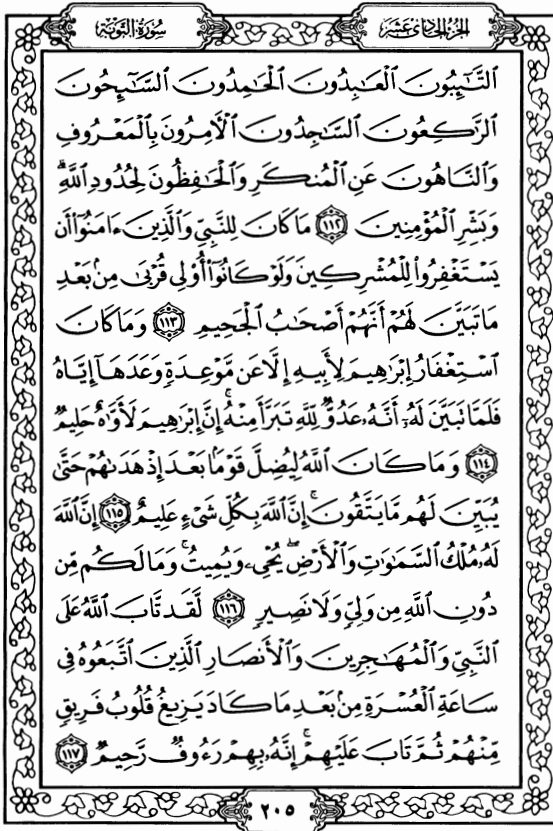 سُورَةُ التَّوْبَةِ
الجُزْءُ الحَادِي عَشَرَ
التَّٰٓئِبُونَ الْعَٰبِدُونَ الْحَٰمِدُونَ السَّٰٓئِحُونَ
الرَّٰكِعُونَ السَّٰجِدُونَ الْءَامِرُونَ بِالْمَعْرُوفِ
وَالنَّاهُونَ عَنِ الْمُنكَرِ وَالْحَٰفِظُونَ لِحُدُودِ اللَّهِ ۗ
وَبَشِّرِ الْمُؤْمِنِينَ ١١٢ مَا كَانَ لِلنَّبِيِّ وَالَّذِينَ ءَامَنُوٓا۟ أَن
يَسْتَغْفِرُوا۟ لِلْمُشْرِكِينَ وَلَوْ كَانُوٓا۟ أُو۟لِى قُرْبَىٰ مِنۢ بَعْدِ
مَا تَبَيَّنَ لَهُمْ أَنَّهُمْ أَصْحَٰبُ الْجَحِيمِ ١١٣ وَمَا كَانَ
اسْتِغْفَارُ إِبْرَٰهِيمَ لِأَبِيهِ إِلَّا عَن مَّوْعِدَةٍ وَعَدَهَآ إِيَّاهُ
فَلَمَّا تَبَيَّنَ لَهُۥٓ أَنَّهُۥ عَدُوٌّ لِّلَّهِ تَبَرَّأَ مِنْهُ ۚ إِنَّ إِبْرَٰهِيمَ لَأَوَّٰهٌ حَلِيمٌ
١١٤ وَمَا كَانَ اللَّهُ لِيُضِلَّ قَوْمًۢا بَعْدَ إِذْ هَدَىٰهُمْ حَتَّىٰ
يُبَيِّنَ لَهُم مَّا يَتَّقُونَ ۚ إِنَّ اللَّهَ بِكُلِّ شَىْءٍ عَلِيمٌ ١١٥ إِنَّ اللَّهَ
لَهُۥ مُلْكُ السَّمَٰوَٰتِ وَالْأَرْضِ ۖ يُحْىِۦ وَيُمِيتُ ۚ وَمَا لَكُم مِّن
دُونِ اللَّهِ مِن وَلِىٍّ وَلَا نَصِيرٍ ١١٦ لَّقَد تَّابَ اللَّهُ عَلَى
النَّبِىِّ وَالْمُهَٰجِرِينَ وَالْأَنصَارِ الَّذِينَ اتَّبَعُوهُ فِى
سَاعَةِ الْعُسْرَةِ مِنۢ بَعْدِ مَا كَادَ يَزِيغُ قُلُوبُ فَرِيقٍ
مِّنْهُمْ ثُمَّ تَابَ عَلَيْهِمْ ۚ إِنَّهُۥ بِهِمْ رَءُوفٌ رَّحِيمٌ ١١٧
٢٠٥